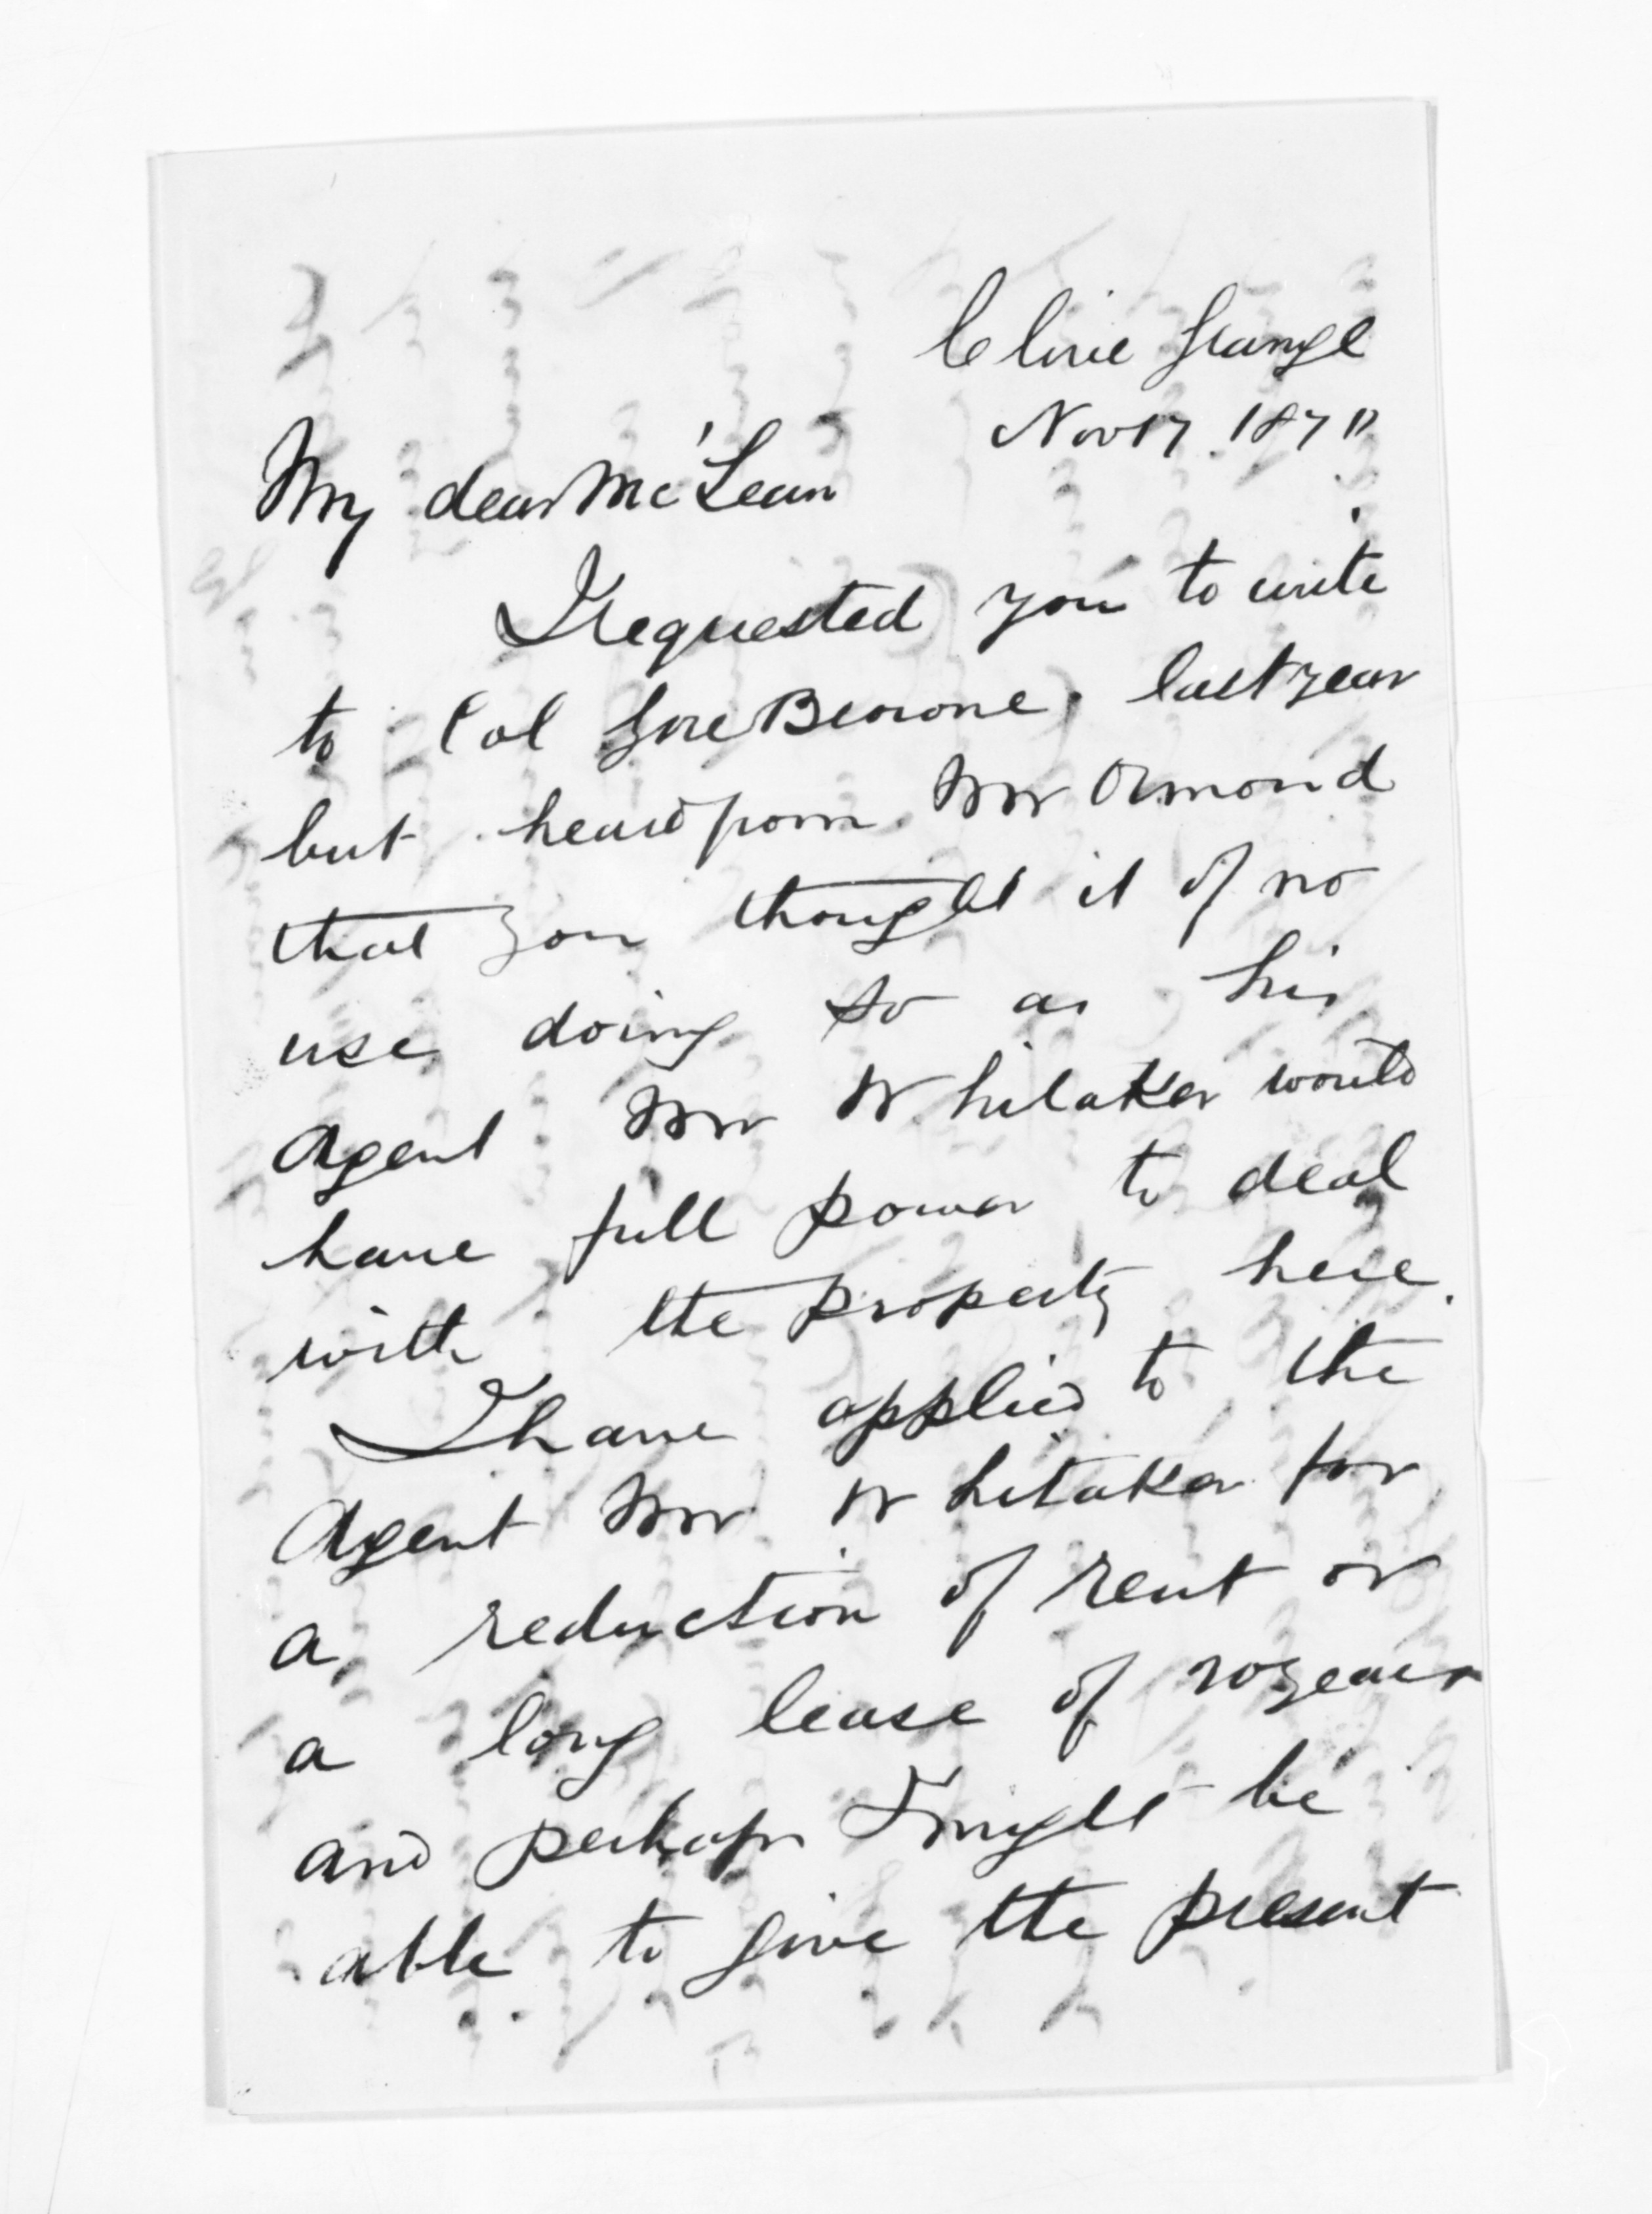 Clive Grange
Nov 17. 1870
My dear McLean
I requested you to write
to Col Gore Browne, last year
but heard from Mr Ormond
that you thought it of no
use doing so as his
Agent Mr Whitaker would
have full power to deal
with the property here.
I have applied to the
Agent Mr Whitaker for
a reduction of rent or
a long lease of 20 years
and perhaps I might be
able to give the present